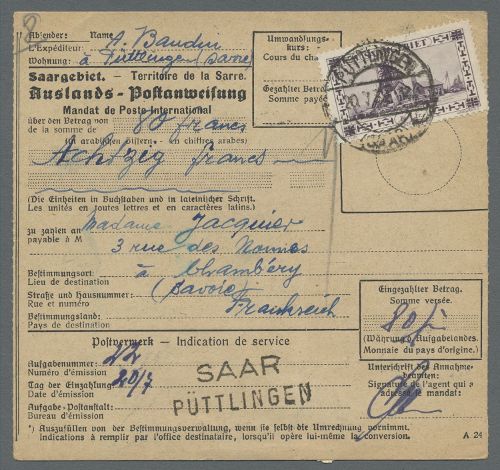 Absender: Name A. Baudui
L'Expéditeur:
Wohnung: à Püttlingen (Sarre)
Saargebiet. – Territoire de la Sarre.
Auslands - Postanweisung
Mandat de Poste International
über den Betrag von
de la somme de 80 francs
(in arabischen Ziffern. - en chiffres arabes)
Achtzig francs
(Die Einheiten in Buchstaben und in lateinischer Schrift.
Les unités en toutes lettres et en caractères latins.)
zu zahlen an
payable à M Madame Jacquier
3 rue des Nonnes
Bestimmungsort: à Chambéry
Lieu de destination
Straße und Hausnummer: (Savoie)
Rue et numéro
Bestimmungsland: Frankreich
Pays de destination
Umwandlungs-
kurs:
Cours du chan
Gezahlter Betrag
Somme payée
GEBIET
PÜTTLINGEN
(SAAR)
Eingezahlter Betrag.
Somme versée.
80 fr
(Währung d. Aufgabelandes.
Monnaie du pays d'origine.)
Postvermerk – Indication de service
Aufgabenummer: 22
Numéro d'émission
Tag der Einzahlung 20/7
Date d'émission
Aufgabe-Postanstalt:
Bureau d'émission
SAAR
PÜTTLINGEN
Unterschrift des Annahme-
beamten:
Signature de l'agent qui a
adressé le mandat:
*) Auszufüllen von der Bestimmungsverwaltung, wenn sie selbst die Umrechnung vornimmt.
Indications à remplir par l'office destinataire, lorsqu'il opère lui-même la conversion.
A 24